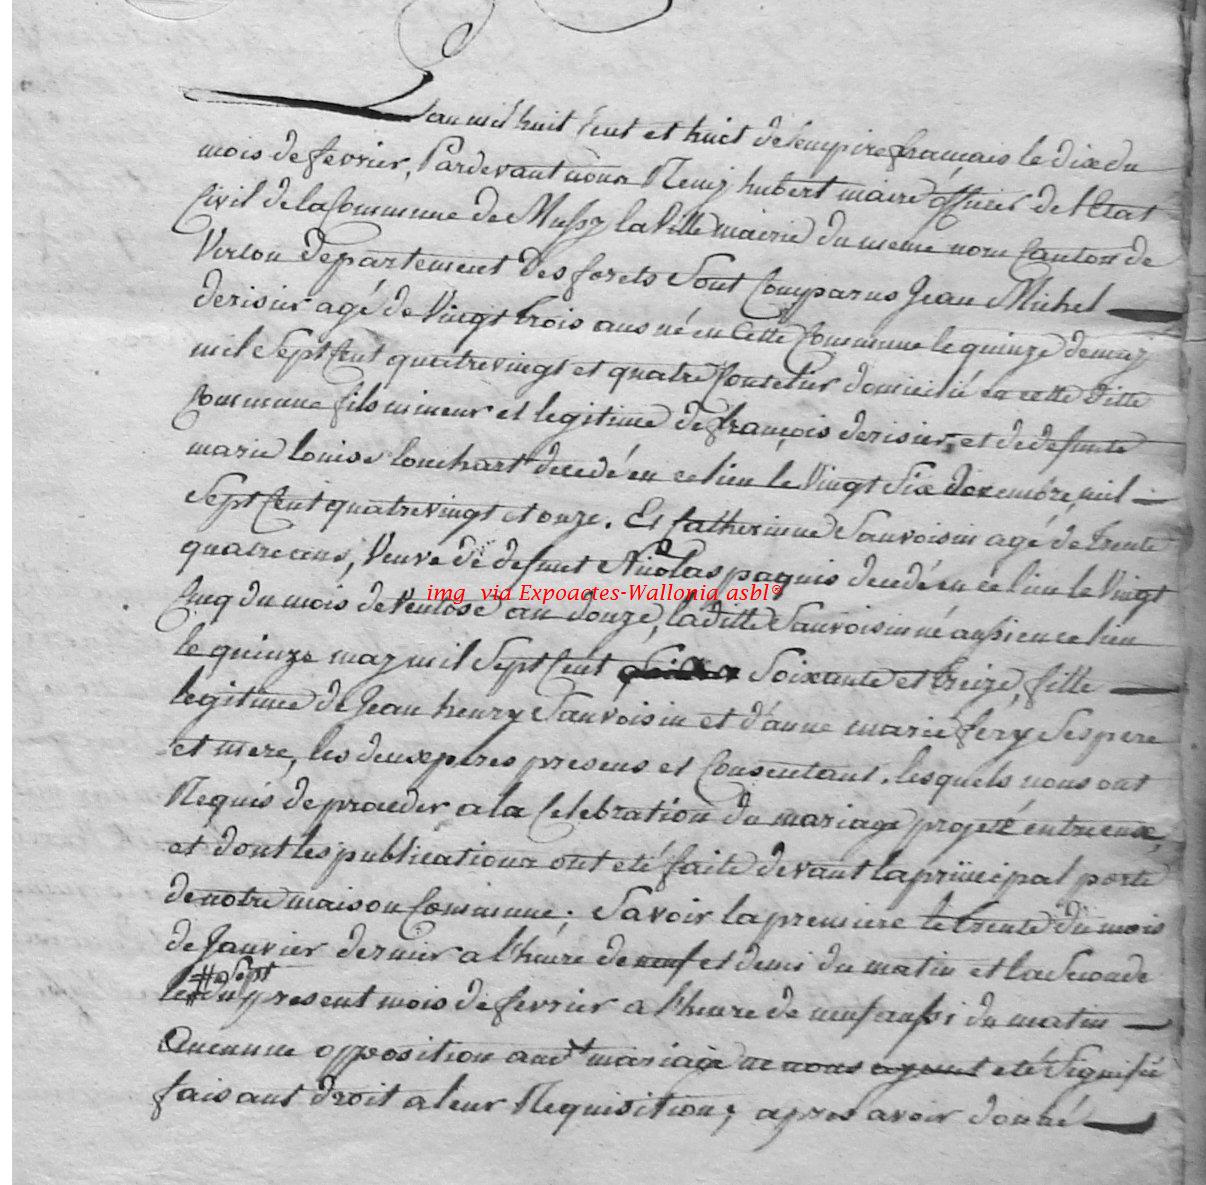 L'an mil huit Cent et huit de l'empire français le dix du
mois de fevrier, Pardevant nous Remy hubert maire officier de l'Etat
Civil de la Commune de Mussy la Ville mairie du meme nom Canton de
Virton departement des forets Sont Comparus Jean Michel
derisier agé de Vingt trois ans né en Cette Commune le quinze de may
mil Sept Cent quatrevingt et quatre domicilié en cette ditte
Commune fils mineur et legitime de françois derisier, et de defunte
marie louise louchart decedé en ce lieu le Vingt Six decembre mil
Sept Cent quatrevingt et onze. Et Catherinne Sauvoisin agé de Trente
quatre ans, Veuve de defunt Nicolas paquis decedé en ce lieu le Vingt
img via Expoactes-Wallonia asbl©
Cinq du mois de Ventose an douze, la ditte Sauvoisin né aussi en ce lieu
le quinze may mil Sept Cent Soixante et treize, fille
legitime de Jean henry Sauvoisin et d'anne marie fery Ses pere
et mere, les deux peres presens et Consentant. lesquels nous ont
Requis de proceder a la Celebration du mariage projeté entre eux,
et dont les publications ont eté faite devant la principal porte
de notre maison Commune; Savoir la premiere le trente du mois
de Janvier dernier a l'heure de neuf et demi du matin et la Seconde
# Sept
le # du present mois de fevrier a l'heure de neuf aussi du matin
Aucunne opposition audt mariage ne nous ayant eté Signifié
faisant droit a leur Requisition; apres avoir donné